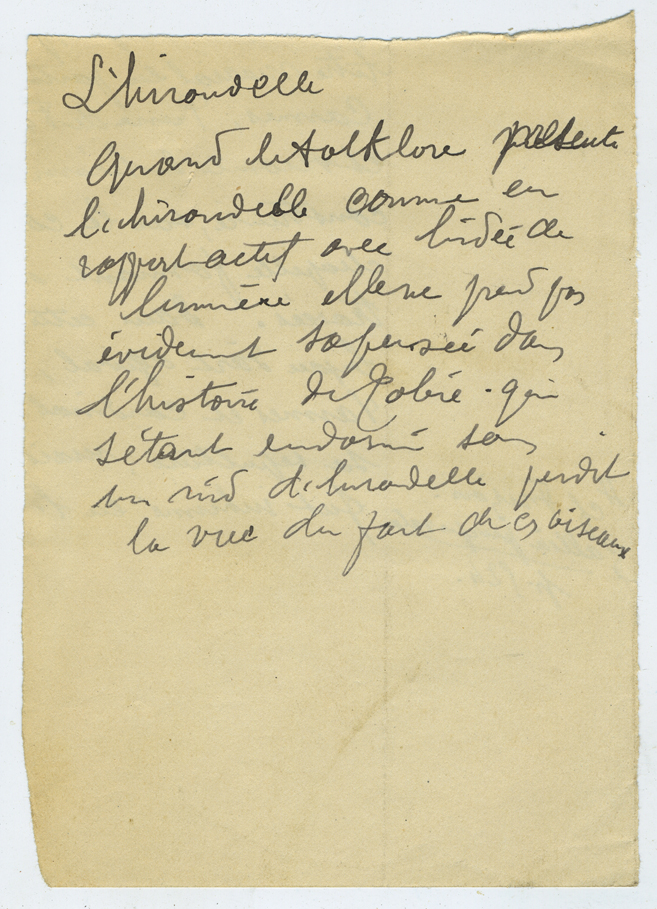 L'hirondelle
Quand le folklore présente
l'hirondelle comme en
rapport actif avec l'idée de
lumière elle ne perd pas
évidemment sa pensée dans
l'histoire de Tobie - qui
s'étant endormi sous
un nid d'hirondelle perdit
la vue du fait de ces oiseaux